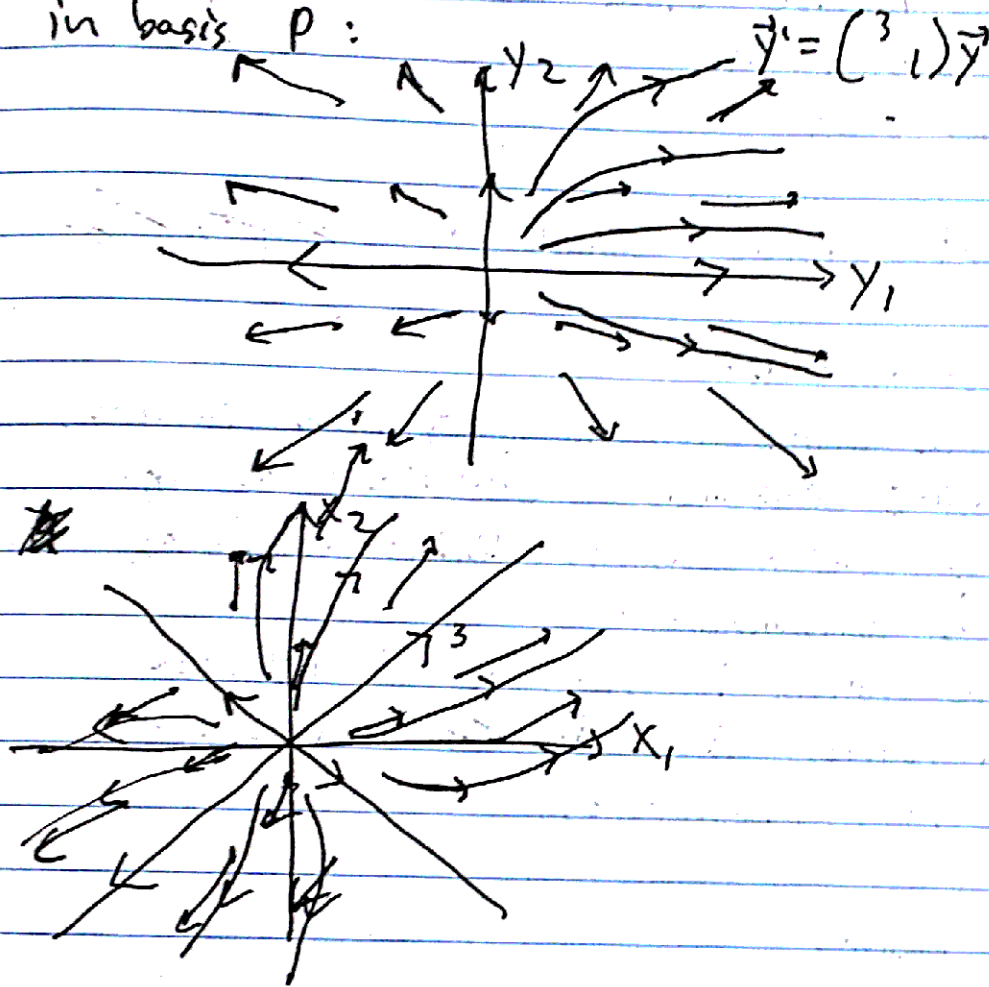 in basis P :
y⃗' = (³ ₁) y⃗
y₂
y₁
x₂
3
x₁